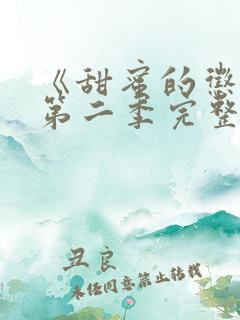 《甜蜜的惩
第二季完整
丑良
未经同意禁止转载